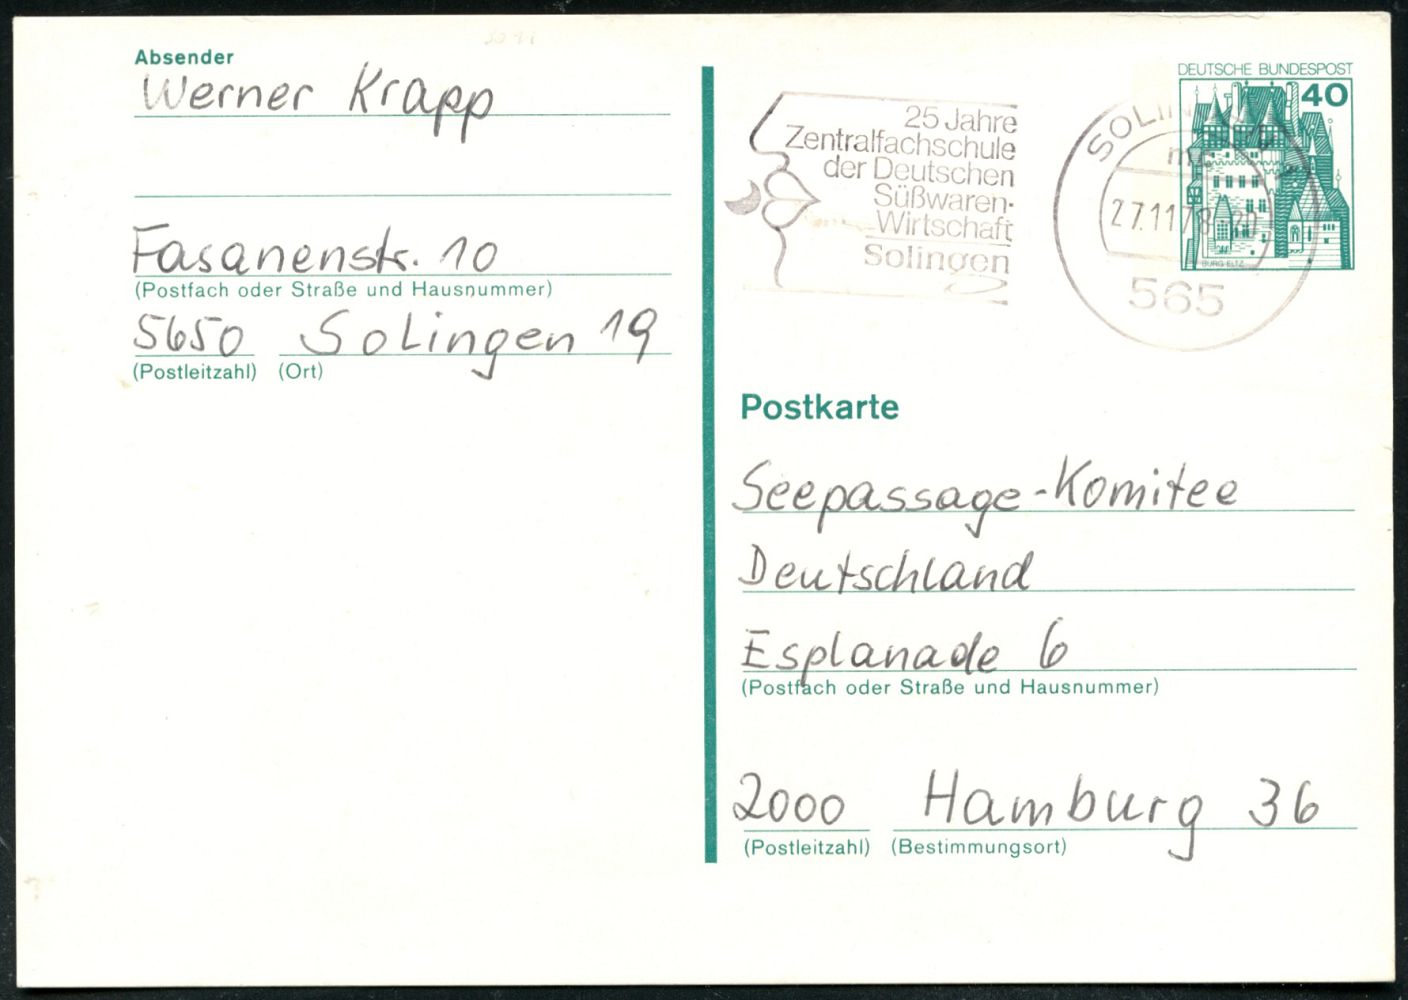 Absender
Werner Krapp
Fasanenstr. 10
(Postfach oder Straße und Hausnummer)
5650 Solingen 19
(Postleitzahl) (Ort)
25 Jahre
Zentralfachschule
der Deutschen
Süßwaren-
Wirtschaft
Solingen
27.11.78
565
DEUTSCHE BUNDESPOST
40
BURG ELTZ
Postkarte
Seepassage-Komitee
Deutschland
Esplanade 6
(Postfach oder Straße und Hausnummer)
2000 Hamburg 36
(Postleitzahl) (Bestimmungsort)